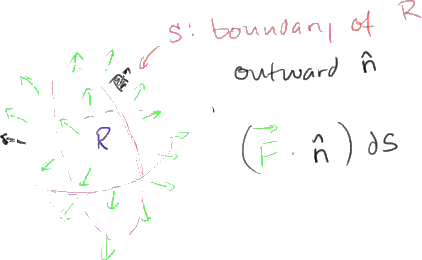 S: boundary of R
outward n̂
R
(F⃗ · n̂) dS